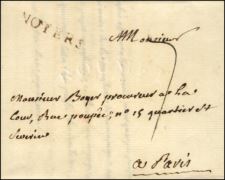 NOYERS
Monsieur
7
Monsieur Boyer procureur a la
Cour, Rue poupée, n° 15 quartier St
Severin
a Paris